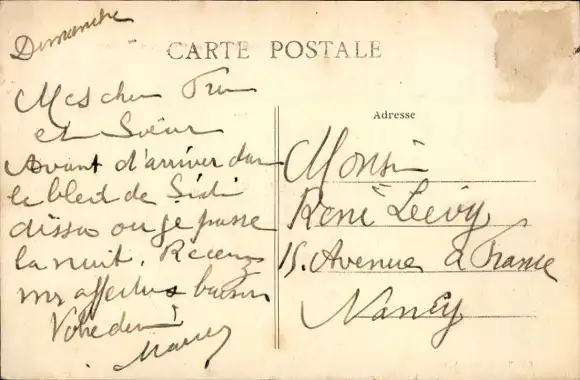 Dimanche
CARTE POSTALE
Mes chers Frère
et Soeur
Avant d'arriver dans
le bled de Sidi
où je passe
la nuit. Recevez
mes affectueux baisers
Votre
Adresse
Monsieur
René Lévy
15. Avenue de France
Nancy